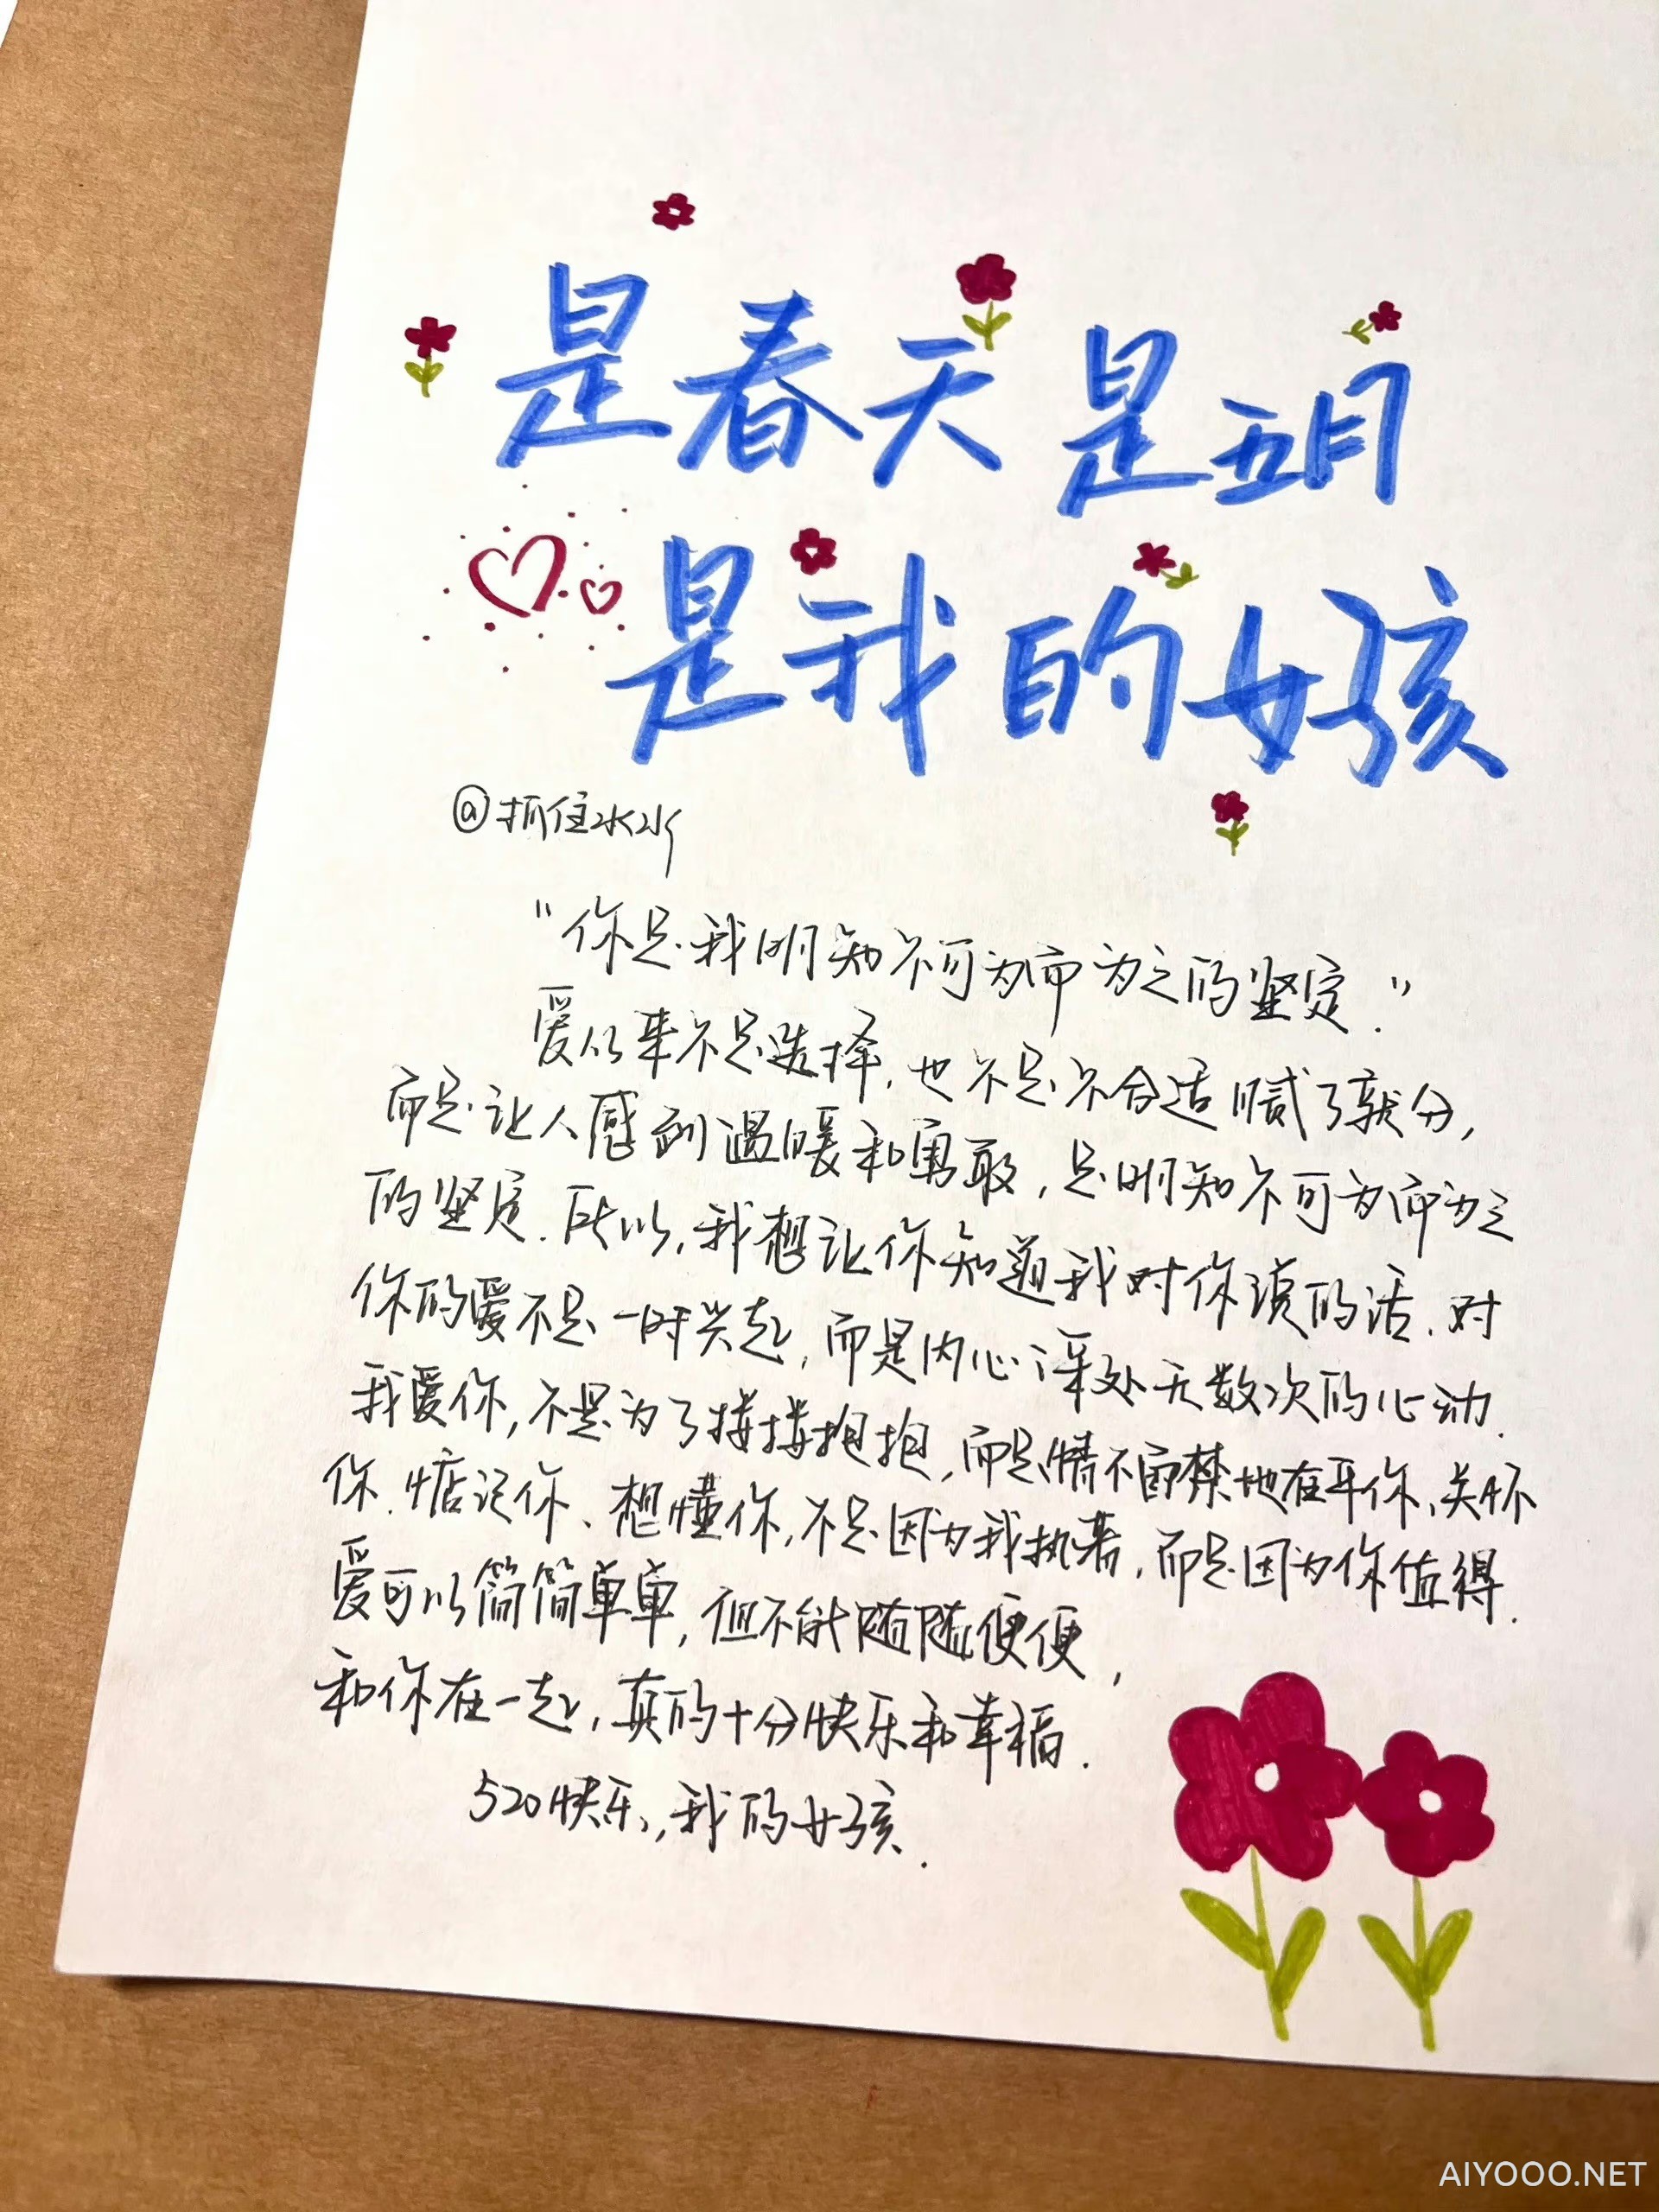 是春天是五月
是我的女孩
@抓住水水
"你是我明知不可为而为之的坚定."
爱从来不是选择.也不是不合适喊了就分,
而是让人感到温暖和勇敢,是明知不可为而为之
的坚定.所以,我想让你知道我对你说的话.对
你的爱不是一时兴起,而是内心深处无数次的心动.
我爱你,不是为了搂搂抱抱,而是情不自禁地在乎你、关怀
你.惦记你、想懂你,不是因为我执著,而是因为你值得.
爱可以简简单单,但不能随随便便,
和你在一起,真的十分快乐和幸福.
520快乐,我的女孩.
AIYOOO.NET